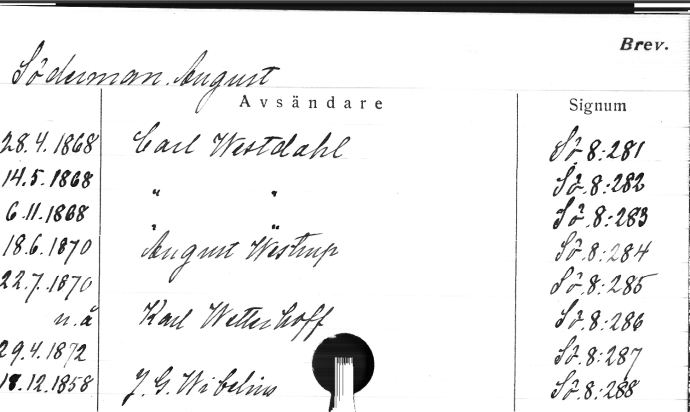 Brev.
Söderman, August
Avsändare Signum
28.4.1868 Carl Westdahl Sö.8:281
14.5.1868 " " Sö.8:282
6.11.1868 " " Sö.8:283
18.6.1870 August Westrup Sö.8:284
22.7.1870 Sö.8:285
n.å Karl Wetterhoff Sö.8:286
29.4.1872 Sö.8:287
12.1858 J.G. Wibelius Sö.8:288